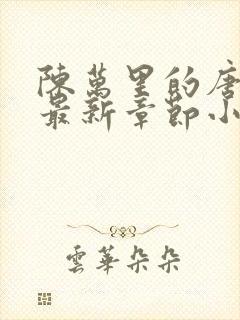 陳萬里的唐
最新章節小
雲華朵朵